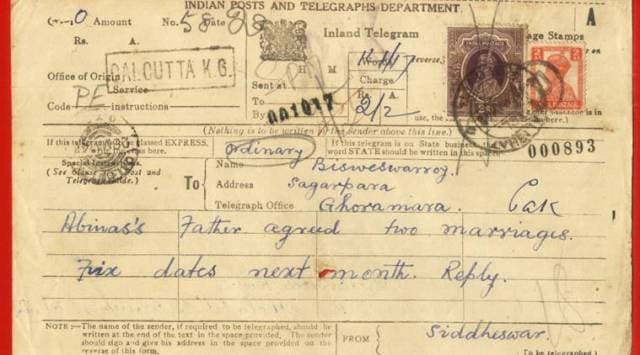 INDIAN POSTS AND TELEGRAPHS DEPARTMENT.
Amount No. 58 Date 28
Rs. A. Inland Telegram Stamps
A
Office of Origin CALCUTTA K.G.
H M
Charge
Service Sent at Rs. A.
Code instructions To By 001017 2/2 use, the
(Nothing is to be written by the sender above this line.)
If this telegram classed EXPRESS, ordinary If this telegram is on State business
word STATE should be written in this 000893
Special Instructions.
(See Post and Telegraph Guide.)
Name Bisweswarroy.
To Address Sagarpara
Telegraph Office Ghoramara. Cak
Abinas's Father agreed two marriages.
Fix dates next month. Reply.
NOTE:—The name of the sender, if required to be telegraphed, should be
written at the end of the text in the space provided. The sender
should sign and give his address in the space provided on the
reverse of this form.
FROM Siddheswar.
to be telegraphed.)